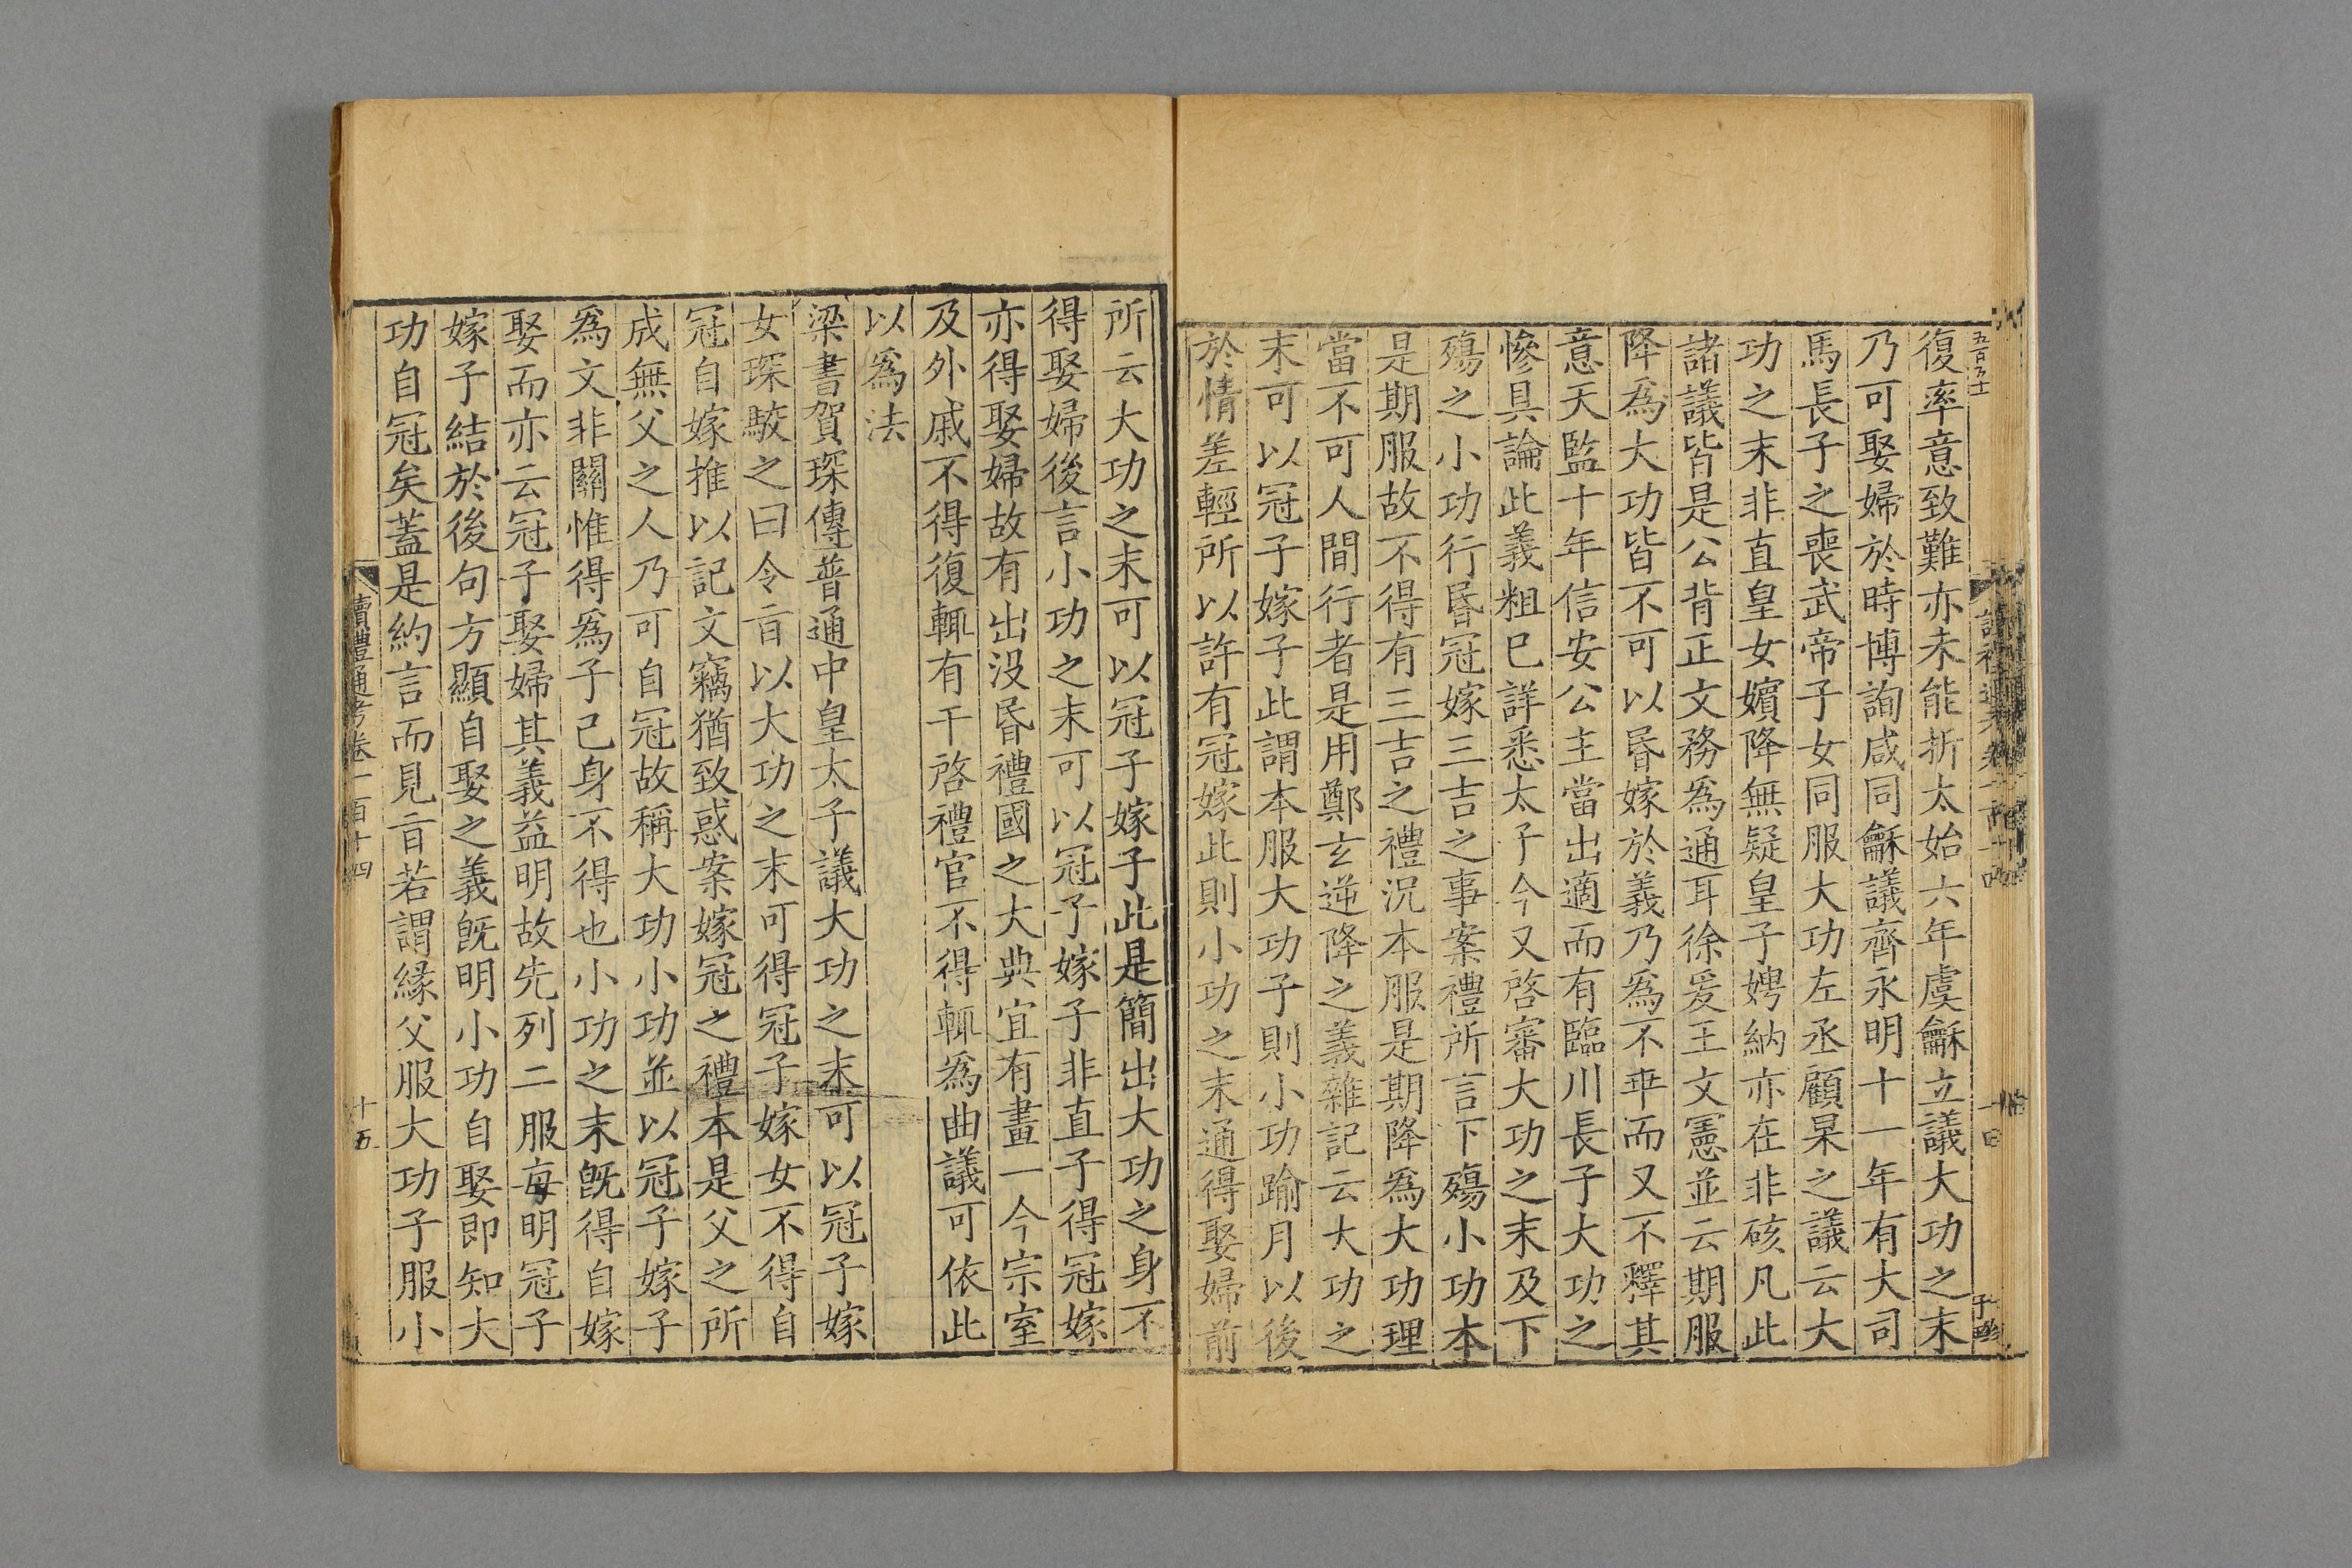 復率意致難亦未能折太始六年虞龢立議大功之末
乃可娶婦於時博詢咸同龢議齊永明十一年有大司
馬長子之喪武帝子女同服大功左丞顧杲之議云大
功之末非直皇女嬪降無疑皇子娉納亦在非硋凡此
諸議皆是公背正文務爲通耳徐爰王文憲並云期服
降爲大功皆不可以昬嫁於義乃爲不乖而又不釋其
意天監十年信安公主當出適而有臨川長子大功之
慘具論此義粗已詳悉太子今又啓審大功之末及下
殤之小功行昬冠嫁三吉之事案禮所言下殤小功本
是期服故不得有三吉之禮況本服是期降爲大功理
當不可人間行者是用鄭玄逆降之義雜記云大功之
末可以冠子嫁子此謂本服大功子則小功踰月以後
於情差輕所以許有冠嫁此則小功之末通得娶婦前
所云大功之末可以冠子嫁子此是簡出大功之身不
得娶婦後言小功之末可以冠子嫁子非直子得冠嫁
亦得娶婦故有出没昬禮國之大典宜有畫一今宗室
及外戚不得復輒有干啓禮官不得輒爲曲議可依此
以爲法
梁書賀琛傳普通中皇太子議大功之末可以冠子嫁
女琛駮之曰令旨以大功之末可得冠子嫁女不得自
冠自嫁推以記文竊猶致惑案嫁冠之禮本是父之所
成無父之人乃可自冠故稱大功小功並以冠子嫁子
爲文非關惟得爲子己身不得也小功之末旣得自嫁
娶而亦云冠子娶婦其義益明故先列二服每明冠子
嫁子結於後句方顯自娶之義旣明小功自娶即知大
功自冠矣蓋是約言而見旨若謂緣父服大功子服小
讀禮通考卷一百十四
十五